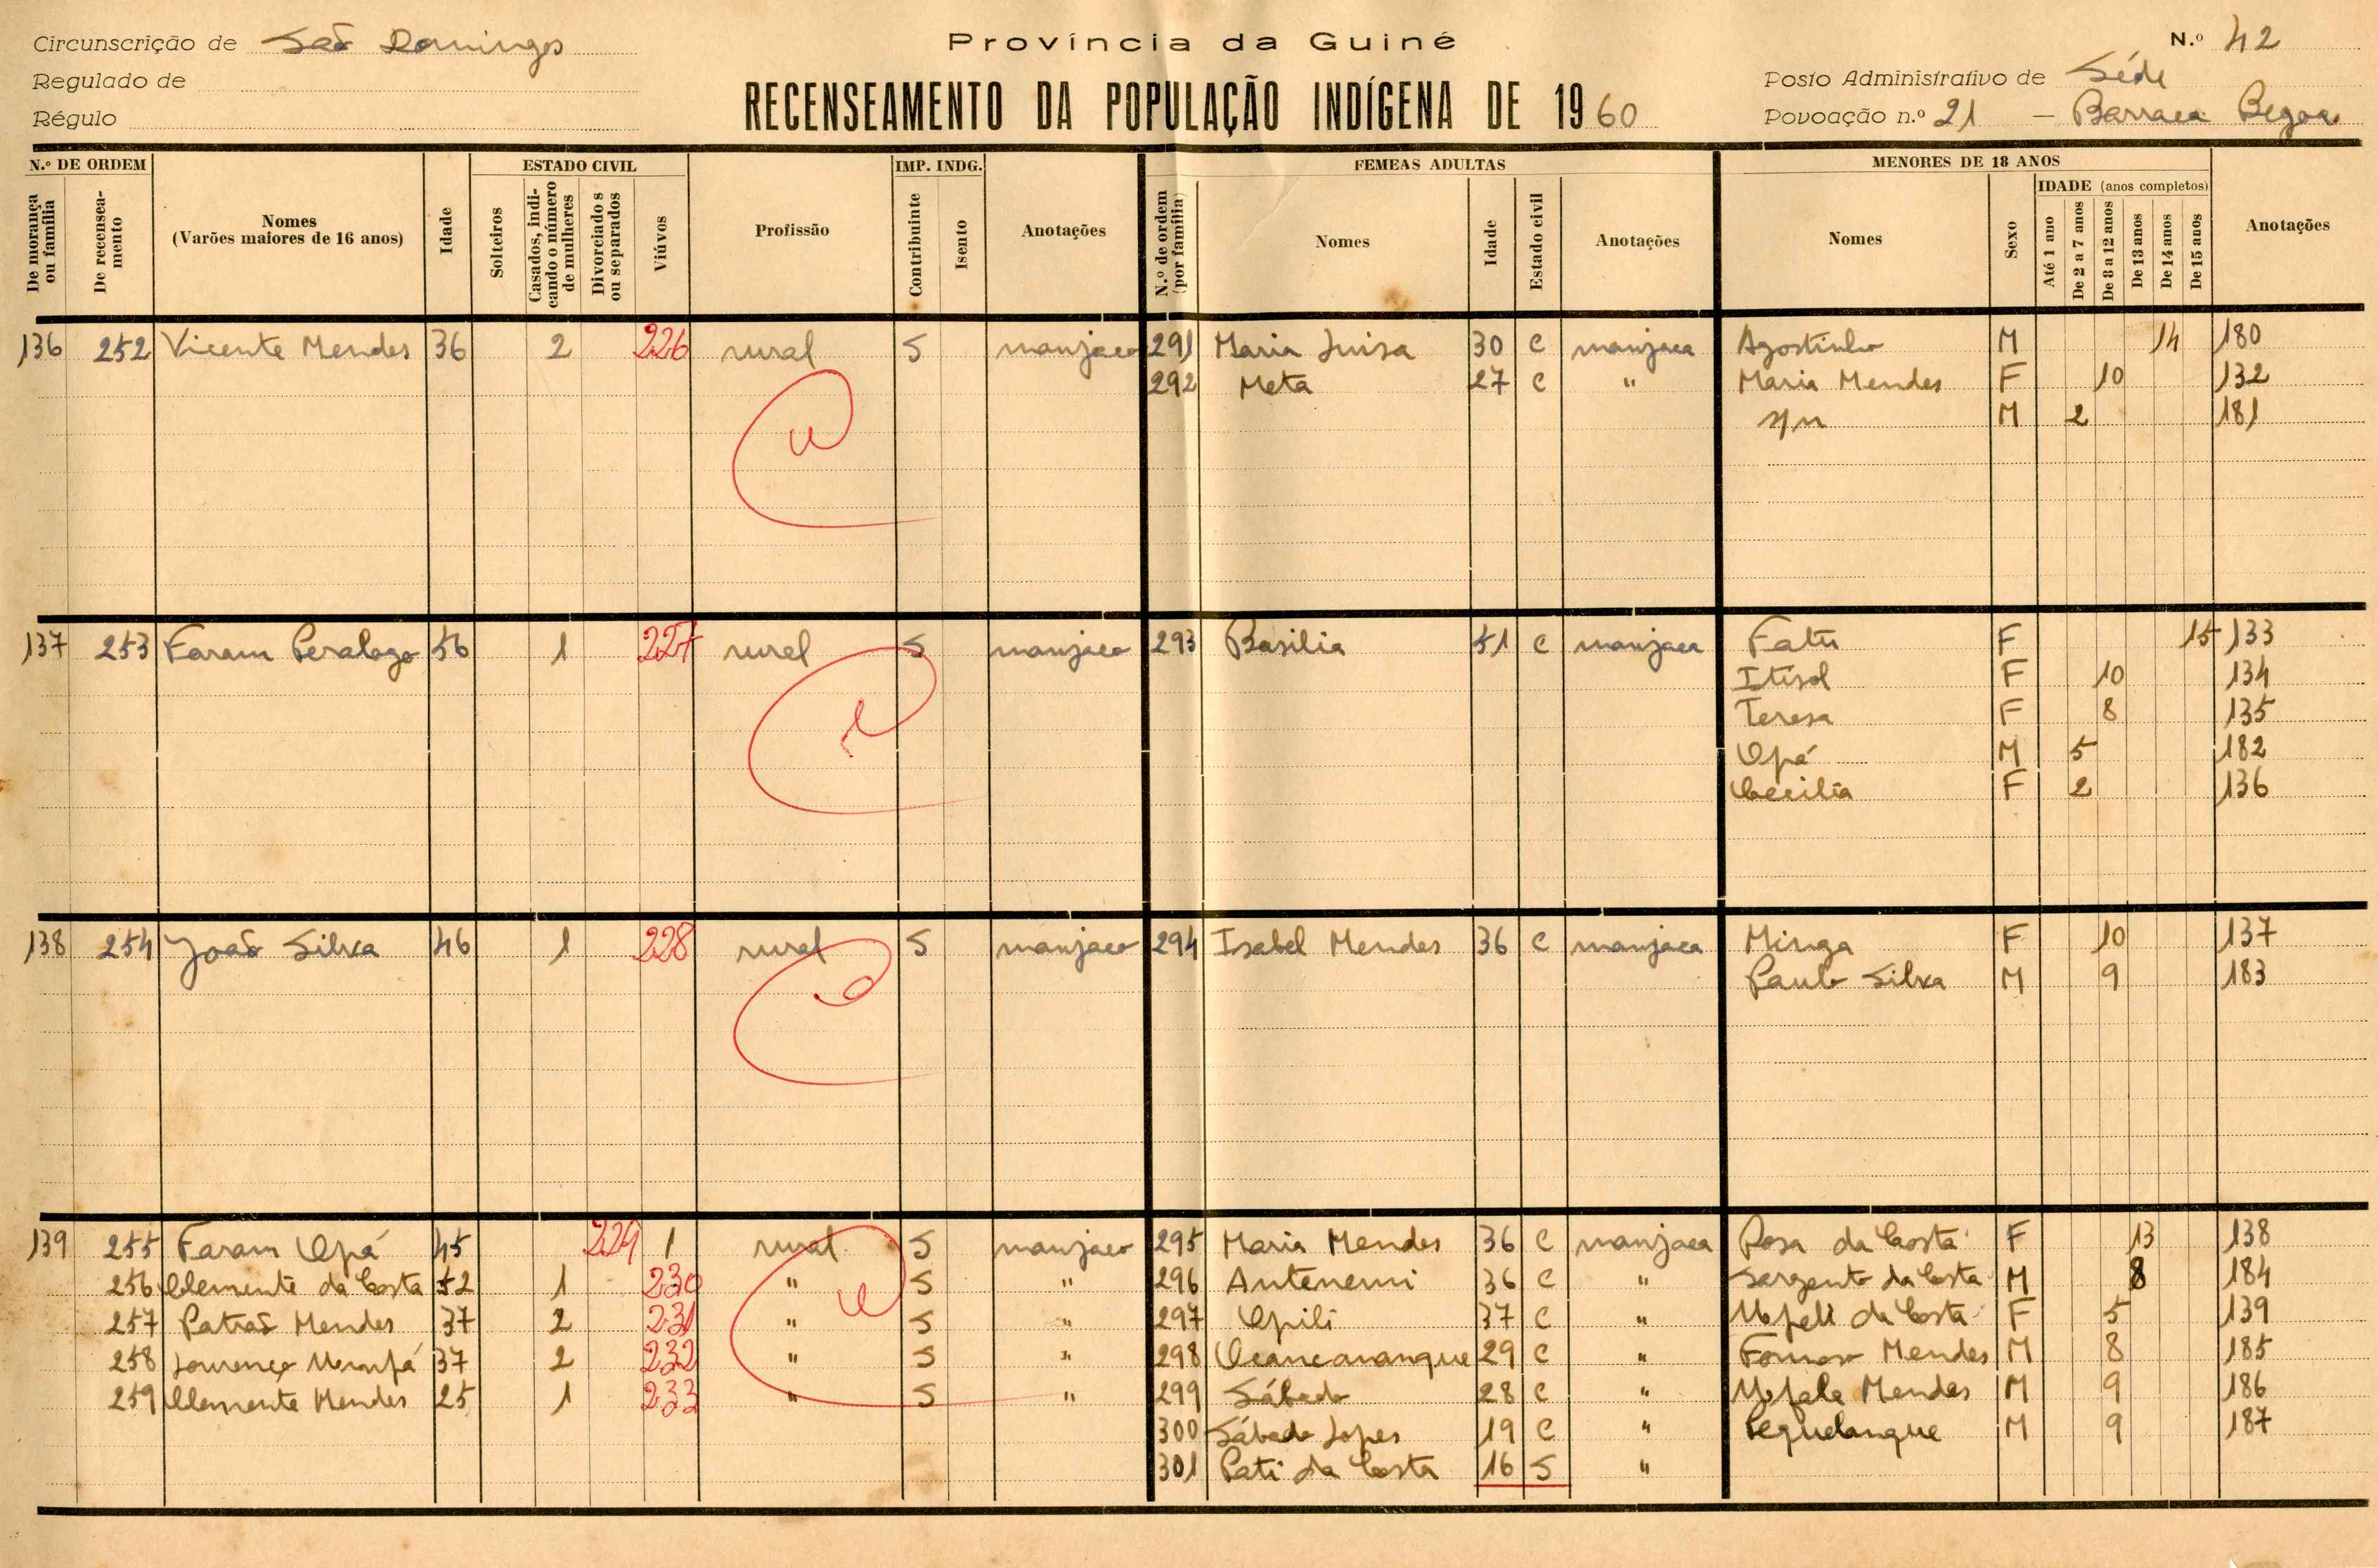 Circunscrição de São Domingos
Província da Guiné
N.º 42
Regulado de
Posto Administrativo de Séde
RECENSEAMENTO DA POPULAÇÃO INDÍGENA DE 1960
Régulo
Povoação n.º 21 — Barraca
N.º DE ORDEM
ESTADO CIVIL
IMP. INDG.
FEMEAS ADULTAS
MENORES DE 18 ANOS
De morança ou família
De recenseamento
Nomes
(Varões maiores de 16 anos)
Idade
Solteiros
Casados, indicando o número de mulheres
Divorciados ou separados
Viúvos
Profissão
Contribuinte
Isento
Anotações
N.º de ordem (por família)
Nomes
Idade
Estado civil
Anotações
Nomes
Sexo
IDADE (anos completos)
Até 1 ano
De 2 a 7 anos
De 8 a 12 anos
De 13 anos
De 14 anos
De 15 anos
Anotações
136 252 Vicente Mendes 36 2 226 rural S manjaco 291 Maria Luisa 30 C manjaca Agostinho M 14 180
292 Meta 27 C " Maria Mendes F 10 132
M 2 181
137 253 Faram 56 1 227 rural S manjaco 293 Basilia 51 C manjaca Fatú F 15 133
Itisol F 10 134
Teresa F 8 135
Opá M 5 182
Cecilia F 2 136
138 254 João Silva 46 1 228 rural S manjaco 294 Isabel Mendes 36 C manjaca Minga F 10 137
Paulo Silva M 9 183
139 255 Faram Opá 45 229 1 rural S manjaco 295 Maria Mendes 36 C manjaca Rosa da Costa F 13 138
256 Clemente da Costa 52 1 230 " S " 296 Antenemi 36 C " Sargento da Costa M 8 184
257 Patrão Mendes 37 2 231 " S " 297 Opili 37 C " da Costa F 5 139
258 Lourenço 37 2 232 " S " 298 29 C " Mendes M 8 185
259 Clemente Mendes 25 1 233 " S " 299 Sábado 28 C " Mendes M 9 186
300 Sábado Lopes 19 C " Pequelangue M 9 187
301 Pati da Costa 16 S "